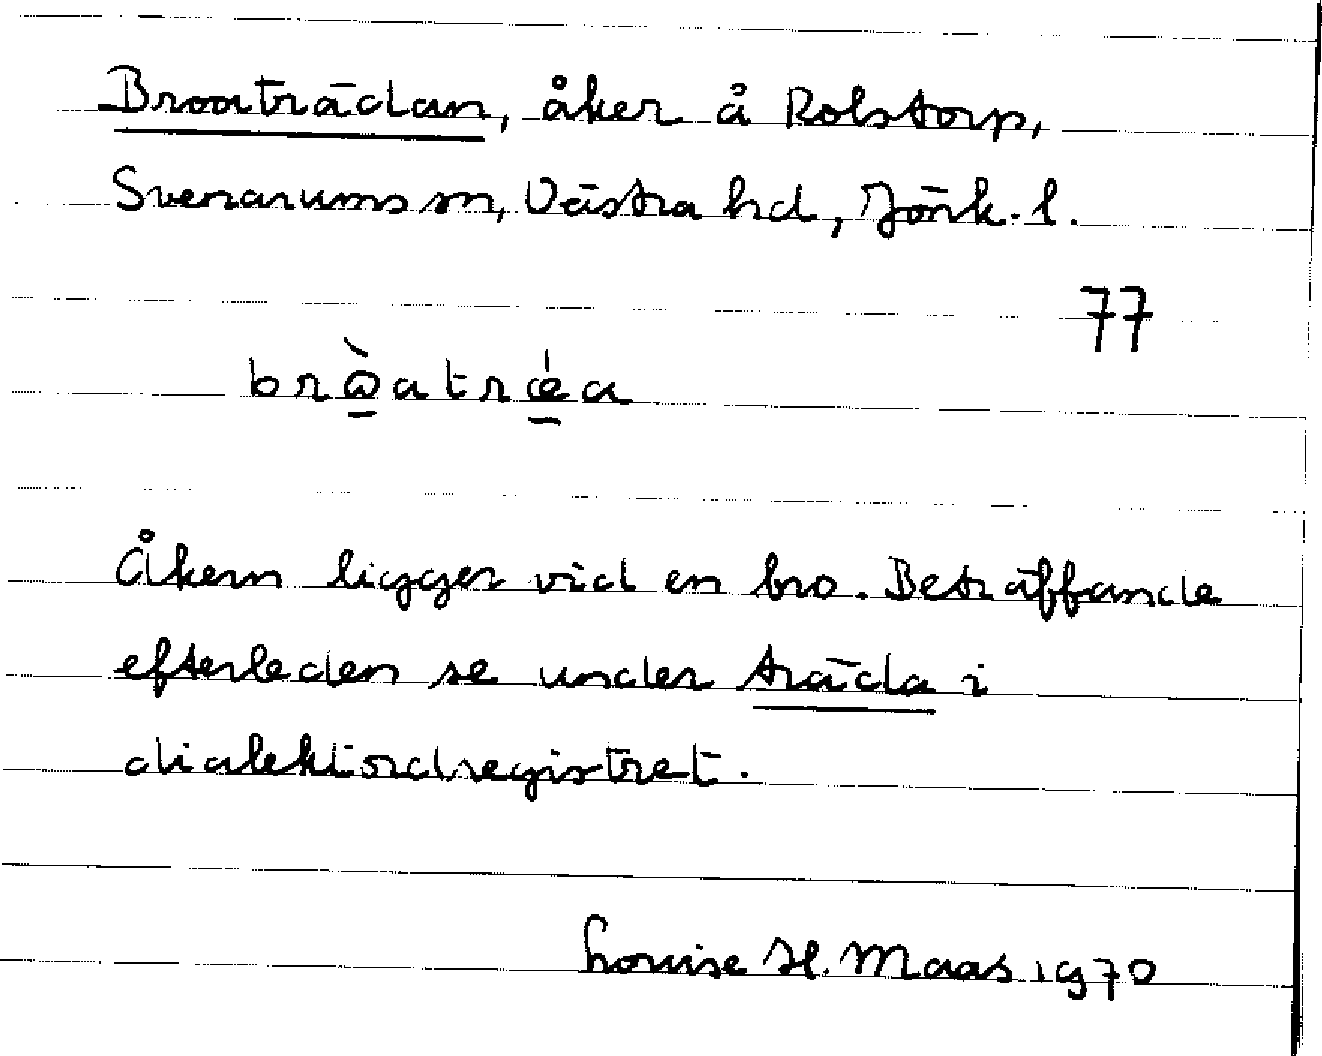 Broaträdan, åker å Rolstorp,
Svenarums sn, Västra hd, Jönk. l.
77
brὼ̲atrǽ̲a
Åkern ligger vid en bro. Beträffande
efterleden se under träda i
dialektordregistret.
Louise H. Maas 1970